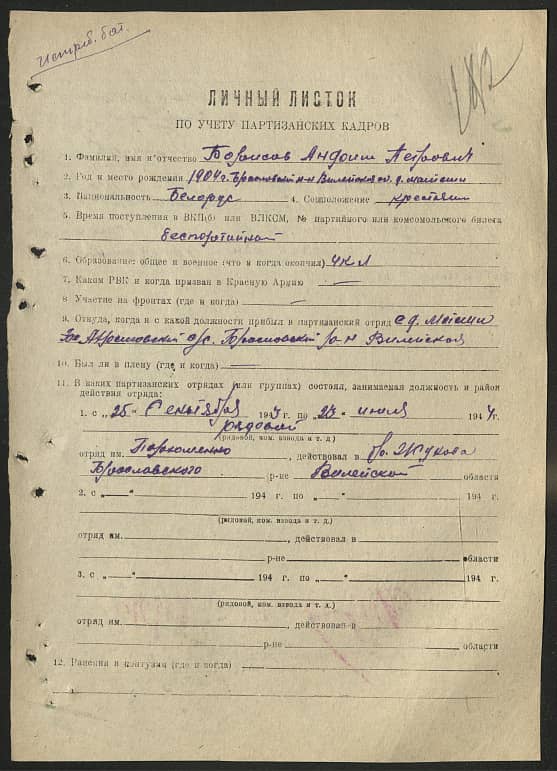 Истреб. бат.
ЛИЧНЫЙ ЛИСТОК
ПО УЧЕТУ ПАРТИЗАНСКИХ КАДРОВ
1. Фамилия, имя и отчество Борисов Андрит Петрович
2. Год и место рождения 1904 г. Браславский р-н Вилейская д.
3. Национальность Белорус 4. Соцположение крестьянин
5. Время поступления в ВКП(б) или ВЛКСМ, № партийного или комсомольского билета
беспартийный
6. Образование: общее и военное (что и когда окончил) 4 кл
7. Каком РВК и когда призван в Красную Армию —
8 Участие на фронтах (где и когда) —
9. Откуда, когда и с какой должности прибыл в партизанский отряд с д.
с/с. Браславский р-н Вилейская
10. Был ли в плену (где и когда) —
11. В каких партизанских отрядах (или группах) состоял, занимаемая должность и район
действия отряда:
1. с „25“ Сентября 1943 г. по „23“ июля 1944 г.
рядовой
(рядовой, ком. взвода и т. д.)
отряд им. Пархоменко, действовал в бр. Жукова
Браславского р-не Вилейской области
2. с „—“ 194 г. по „—“ 194 г.
(рядовой, ком. взвода и т. д.)
отряд им. , действовал в
р-не области
3. с „—“ 194 г. по „—“ 194 г.
(рядовой, ком. взвода и т. д.)
отряд им. , действовал в
р-не области
12. Ранения и контузии (где и когда)